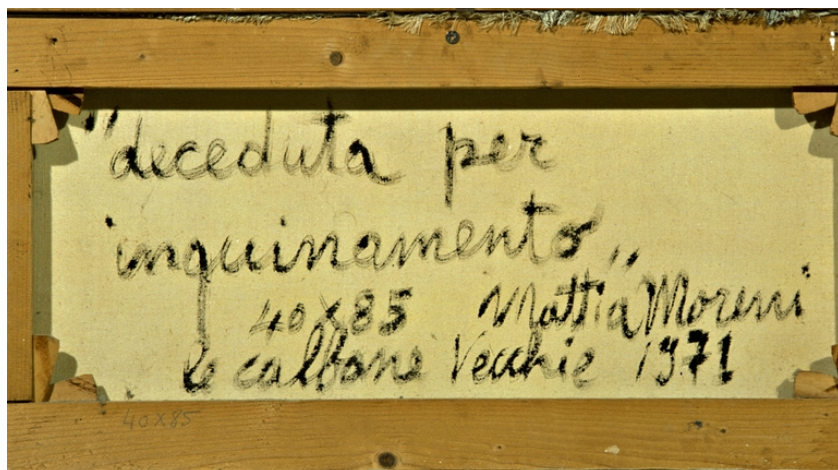 "deceduta per
inquinamento"
40x85 Mattia Moreni
le calbane Vecchie 1971
40x85